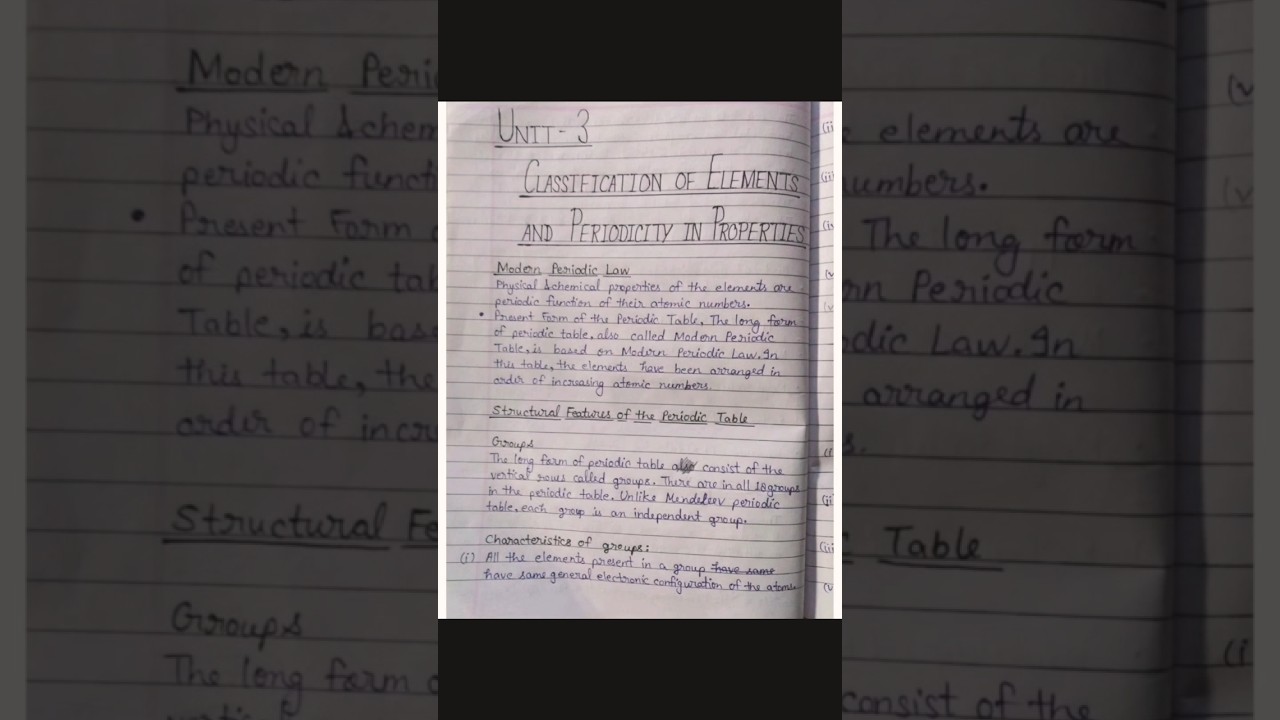 UNIT-3
CLASSIFICATION OF ELEMENTS
AND PERIODICITY IN PROPERTIES
Modern Periodic Law
Physical & chemical properties of the elements are
periodic function of their atomic numbers.
• Present Form of the Periodic Table, The long form
of periodic table, also called Modern Periodic
Table, is based on Modern Periodic Law. In
this table, the elements have been arranged in
order of increasing atomic numbers.
Structural Features of the Periodic Table
Groups
The long form of periodic table also consist of the
vertical rows called groups. There are in all 18 groups
in the periodic table. Unlike Mendeleev periodic
table, each group is an independent group.
Characteristics of groups:
(i) All the elements present in a group have same
have same general electronic configuration of the atoms.